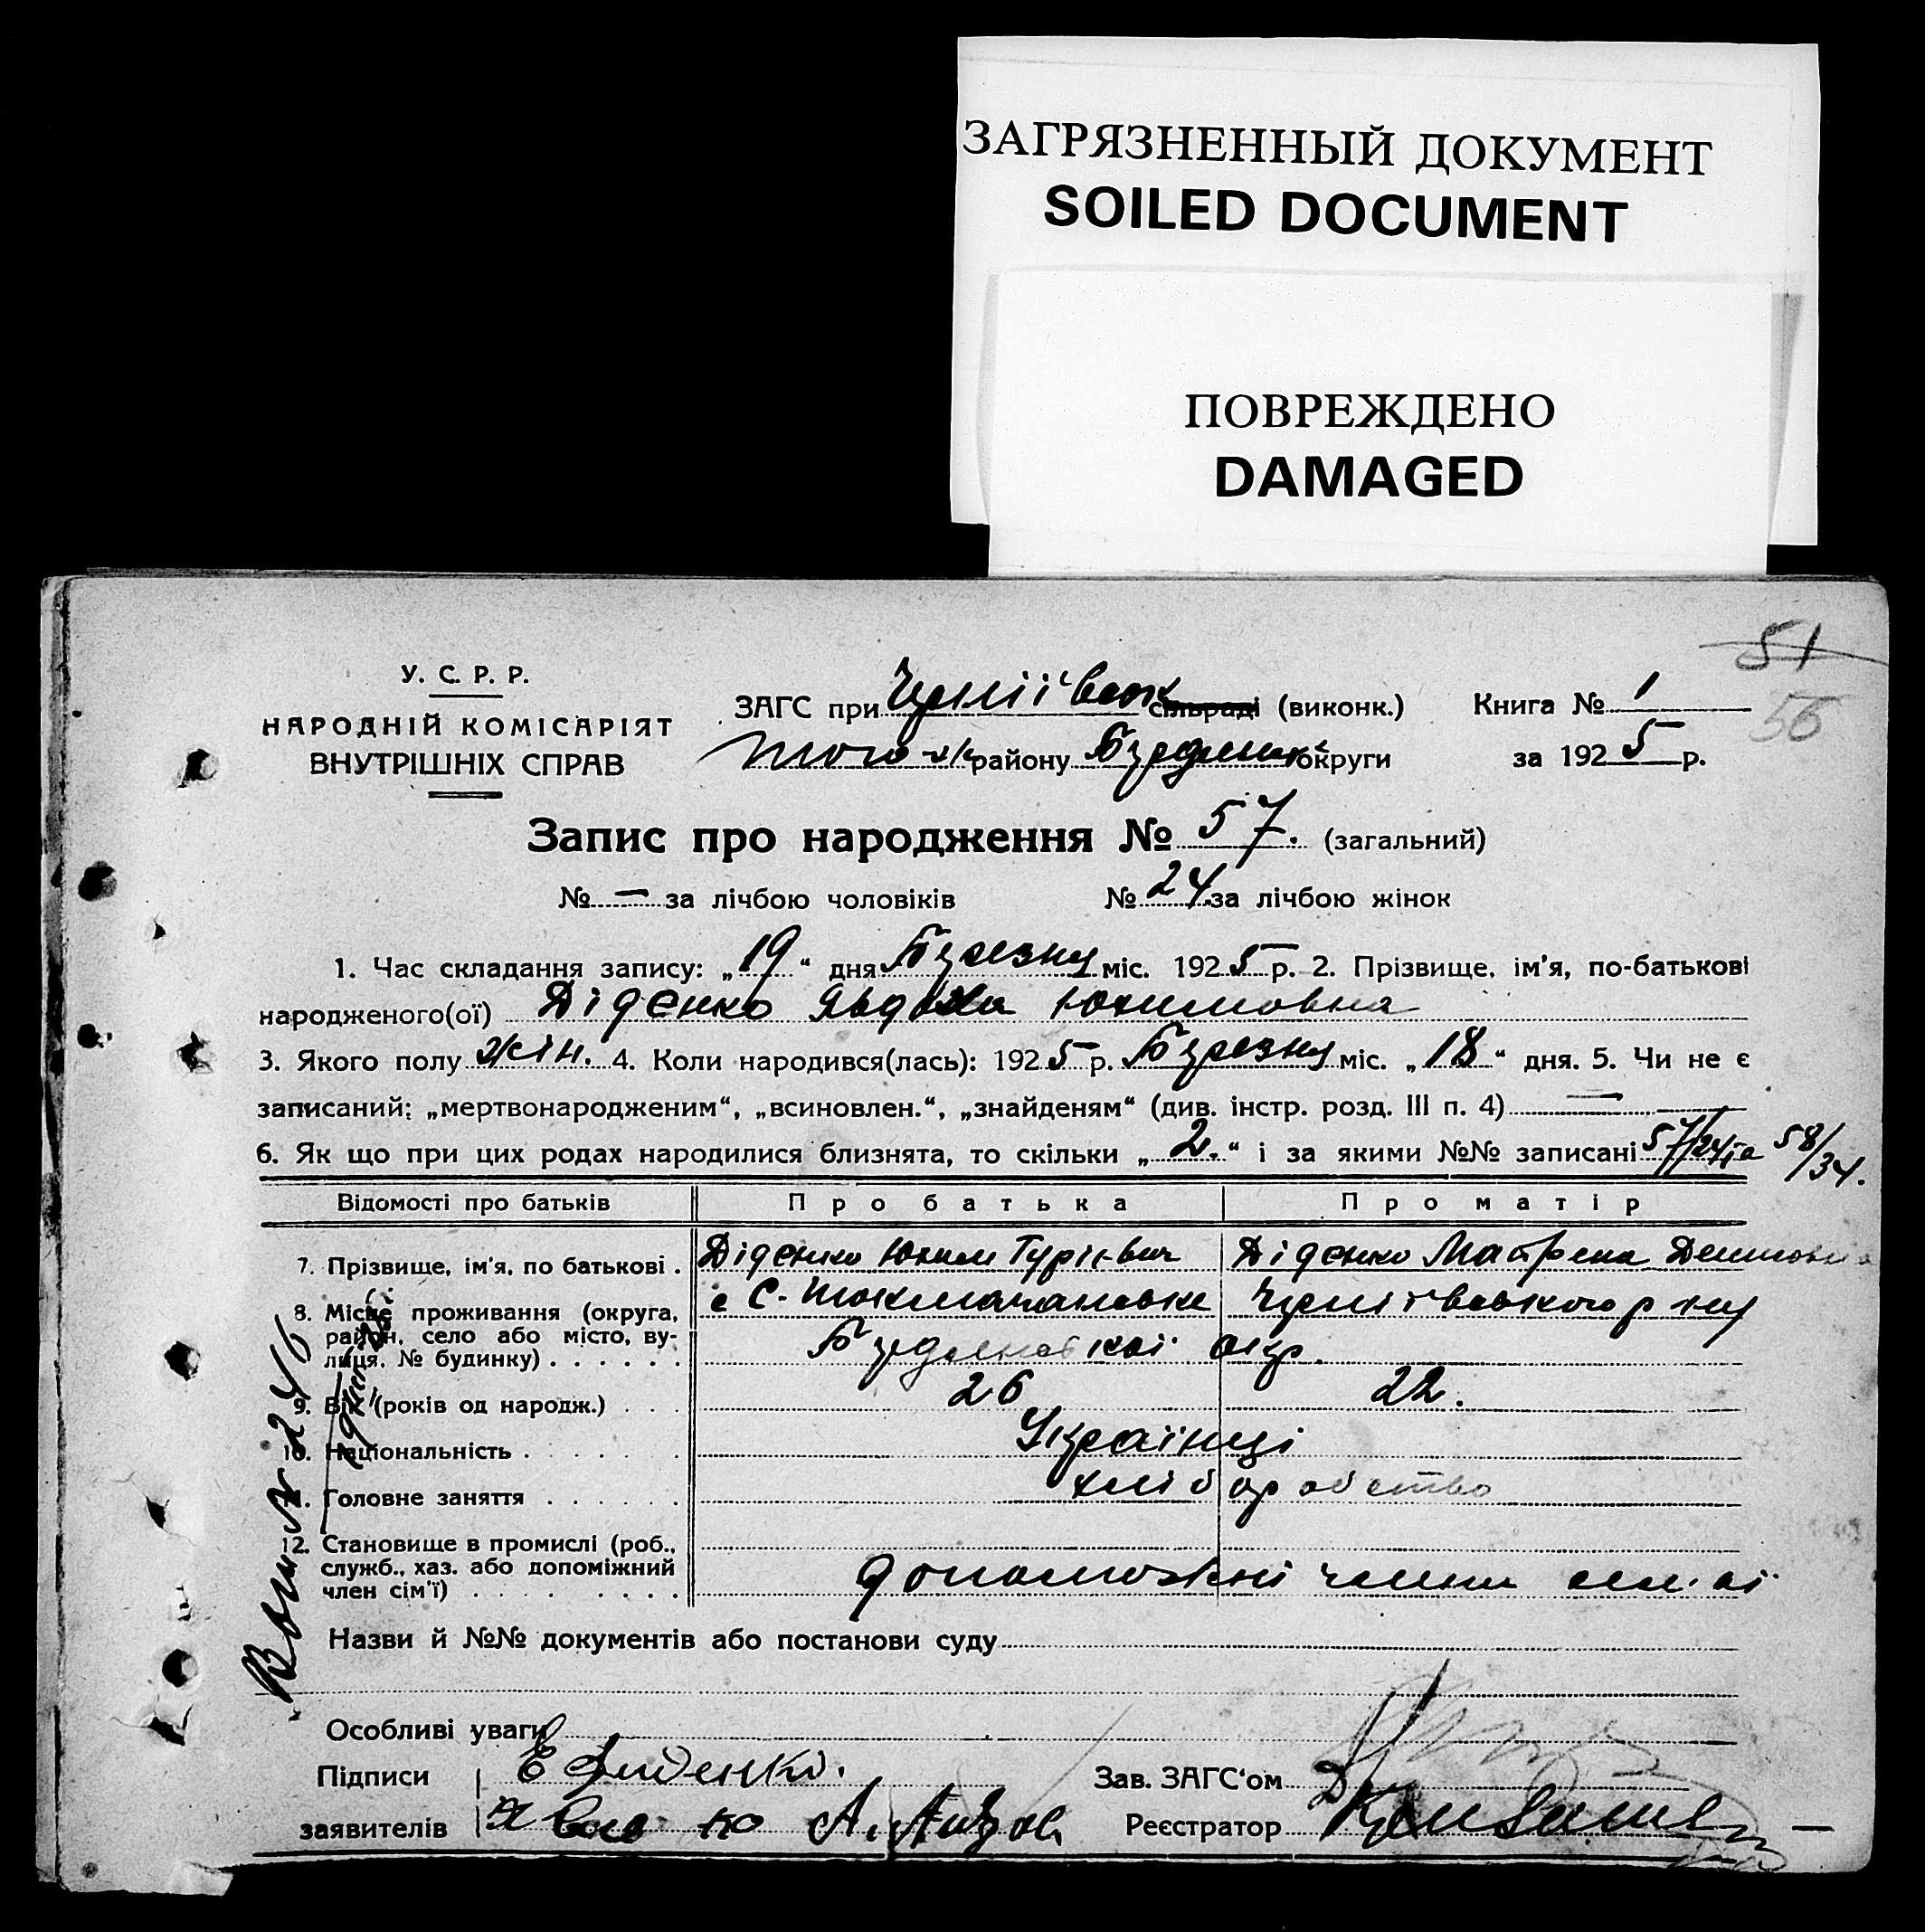 ЗАГРЯЗНЕННЫЙ ДОКУМЕНТ
SOILED DOCUMENT
ПОВРЕЖДЕНО
DAMAGED
51
56
У. С. Р. Р.
НАРОДНІЙ КОМІСАРІЯТ
ВНУТРІШНІХ СПРАВ
ЗАГС при сільраді (виконк.) Книга № 1
того ж району округи за 1925 р.
Запис про народження № 57. (загальний)
№ — за лічбою чоловіків № 24 за лічбою жінок
1. Час складання запису: „19“ дня Березня міс. 1925 р. 2. Прізвище, ім'я, по-батькові
народженого(ої) Діденко Явдоха Юхимовна
3. Якого полу жін. 4. Коли народився(лась): 1925 р. Березня міс. „18“ дня. 5. Чи не є
записаний: „мертвонародженим“, „всиновлен.“, „знайденям“ (див. інстр. розд. III п. 4) —
6. Як що при цих родах народилися близнята, то скільки „2.“ і за якими №№ записані 57/24 та 58/34.
Відомості про батьків Про батька Про матір
7. Прізвище, ім'я, по батькові . Діденко Юхим Діденко
8. Місце проживання (округа,
район, село або місто, ву-
лиця, № будинку) . . . . . . окр.
9. Вік (років од народж.) . . . 26 22.
10. Національність . . . . . . Українці
11. Головне заняття . . . . . . хліборобство
12. Становище в промислі (роб.,
служб., хаз. або допоміжний
член сім'ї) . . . . . . . . допоможні члени
Назви й №№ документів або постанови суду
Особливі уваги
Підписи Е Диденко. Зав. ЗАГС'ом
заявителів А. Реєстратор